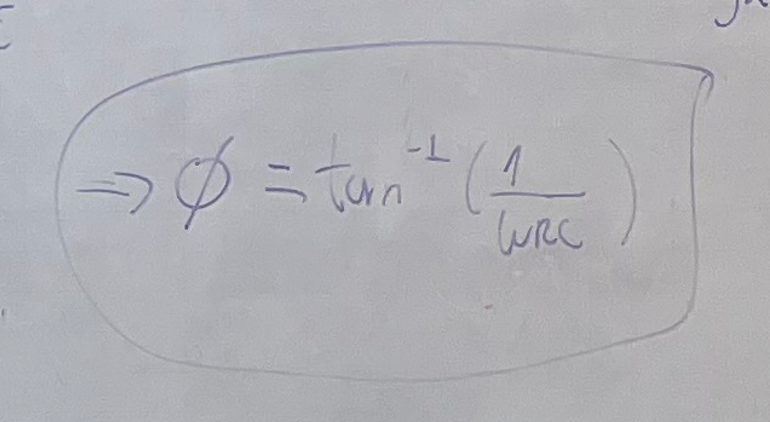 ⇒ ϕ = tan⁻¹ (1/ωRC)